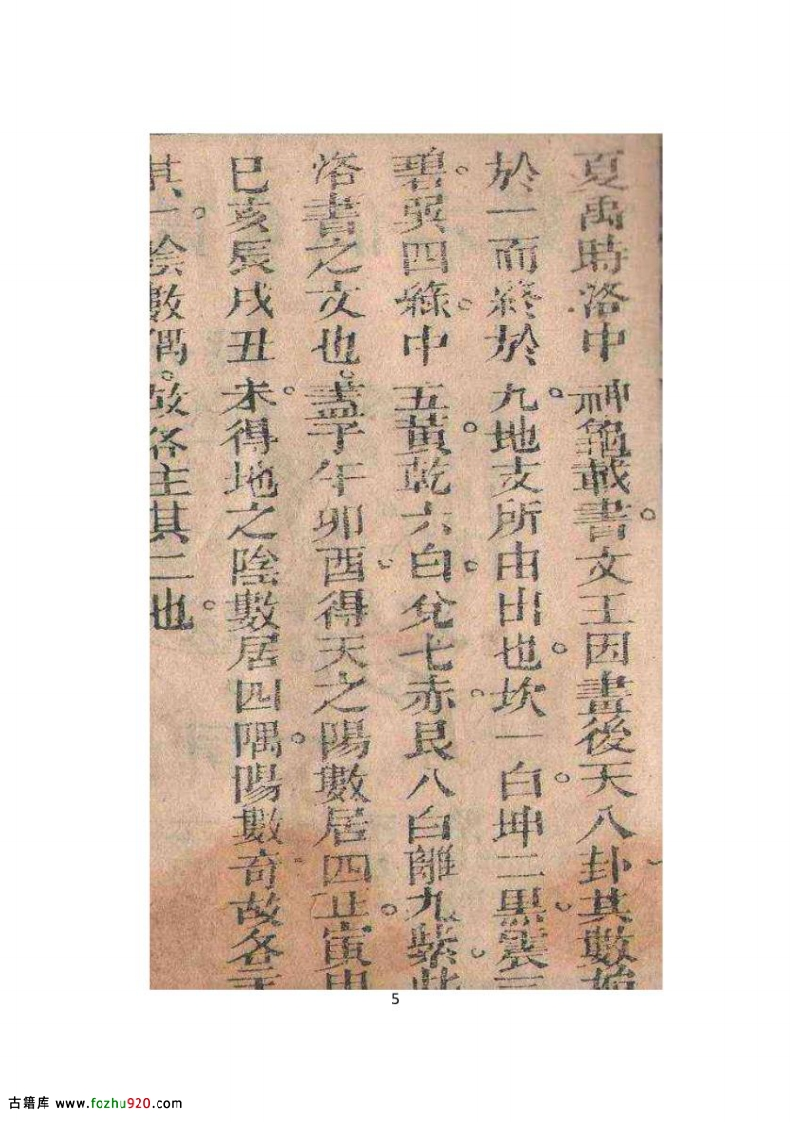 夏禹時洛中神龜載書。文王因畫後天八卦其數始
於一而終於九。地支所由出也。坎一白。坤二黑。震三
碧。巽四綠。中五黃。乾六白。兌七赤。艮八白離九紫。此
洛書之文也。盖子午卯酉。得天之陽數居四正。寅申
巳亥辰戌丑未。得地之陰數居四隅。陽數奇。故各主
其一。陰數偶。故各主其二也。
5
古籍库 www.fozhu920.com